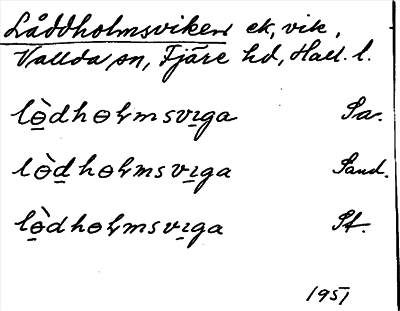 Låddholmsviken ek, vik,
Vallda sn, Fjäre hd, Hall. l.
lɵ̀dhɵlmsvɪga Sa.
lɵ̀dhɵlmsvɪga Sand.
lɵ̀dhɵlmsvɪga St.
1951